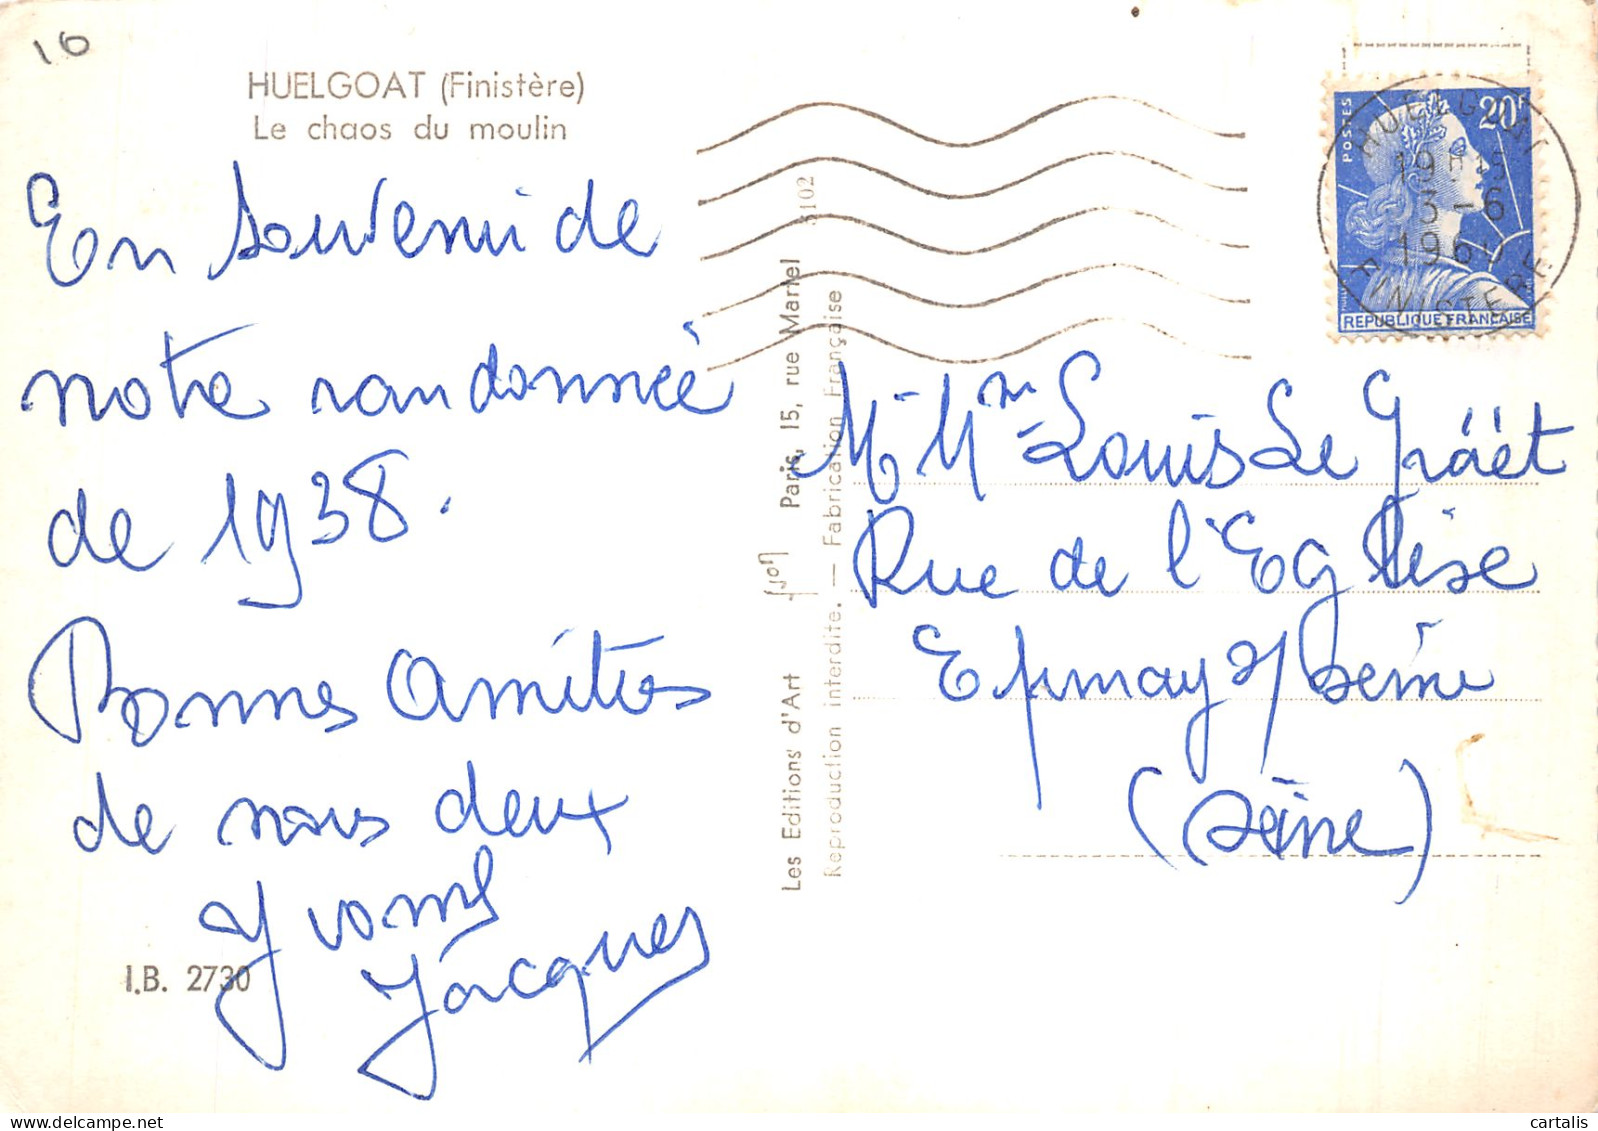 10
HUELGOAT (Finistère)
Le chaos du moulin
En souvenir de
notre randonnée
de 1938.
Bonnes Amitiés
de nous deux
Yvonne
Jacques
I.B. 2730
Les Editions d'Art Yvon Paris, 15, rue Martel
Reproduction interdite. — Fabrication Française
POSTES
20F
REPUBLIQUE FRANÇAISE
HUELGOAT
3 -6
1960
FINISTERE
M. Mme Louis Le Gráët
Rue de l'Eglise
Epinay s/ Seine
(Seine)
cartalis